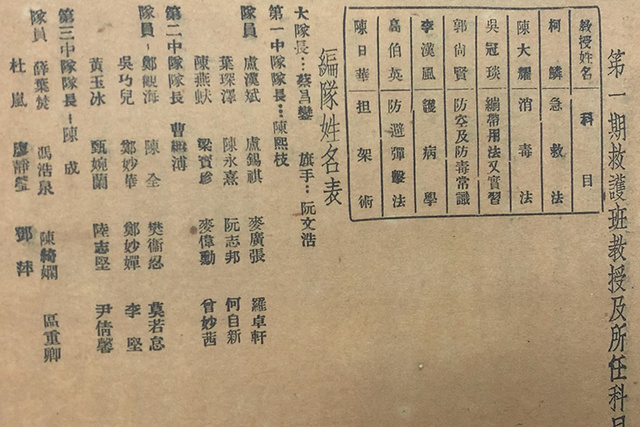 第一期救護班教授及所任科目
教授姓名 科目
柯麟 急救法
陳大耀 消毒法
吳冠琰 繃帶用法又實習
郭尚賢 防空及防毒常識
李漢風 護病學
葛伯英 防避彈擊法
陳日華 担架術
編隊姓名表
大隊長…蔡昌鑾 旗手…阮文浩
第一中隊隊長…陳熙枝
隊員 盧漢斌 盧錫祺 麥廣張 羅卓軒
葉琛澤 陳永熹 阮志邦 何自新
陳燕蚨 梁寶珍 麥偉勳 曾妙茜
第二中隊隊長 曹 溥
隊員 鄭觀海 陳全 樊衞忍 莫若怠
吳巧兒 鄭妙華 鄭妙嬋 李堅
黃玉冰 甄婉蘭 陸志堅 尹倩馨
第三中隊隊長 陳成
隊員 薛葉於 馮浩泉 陳綺嫻 區重卿
杜嵐 廖靜瑩 鄧萍